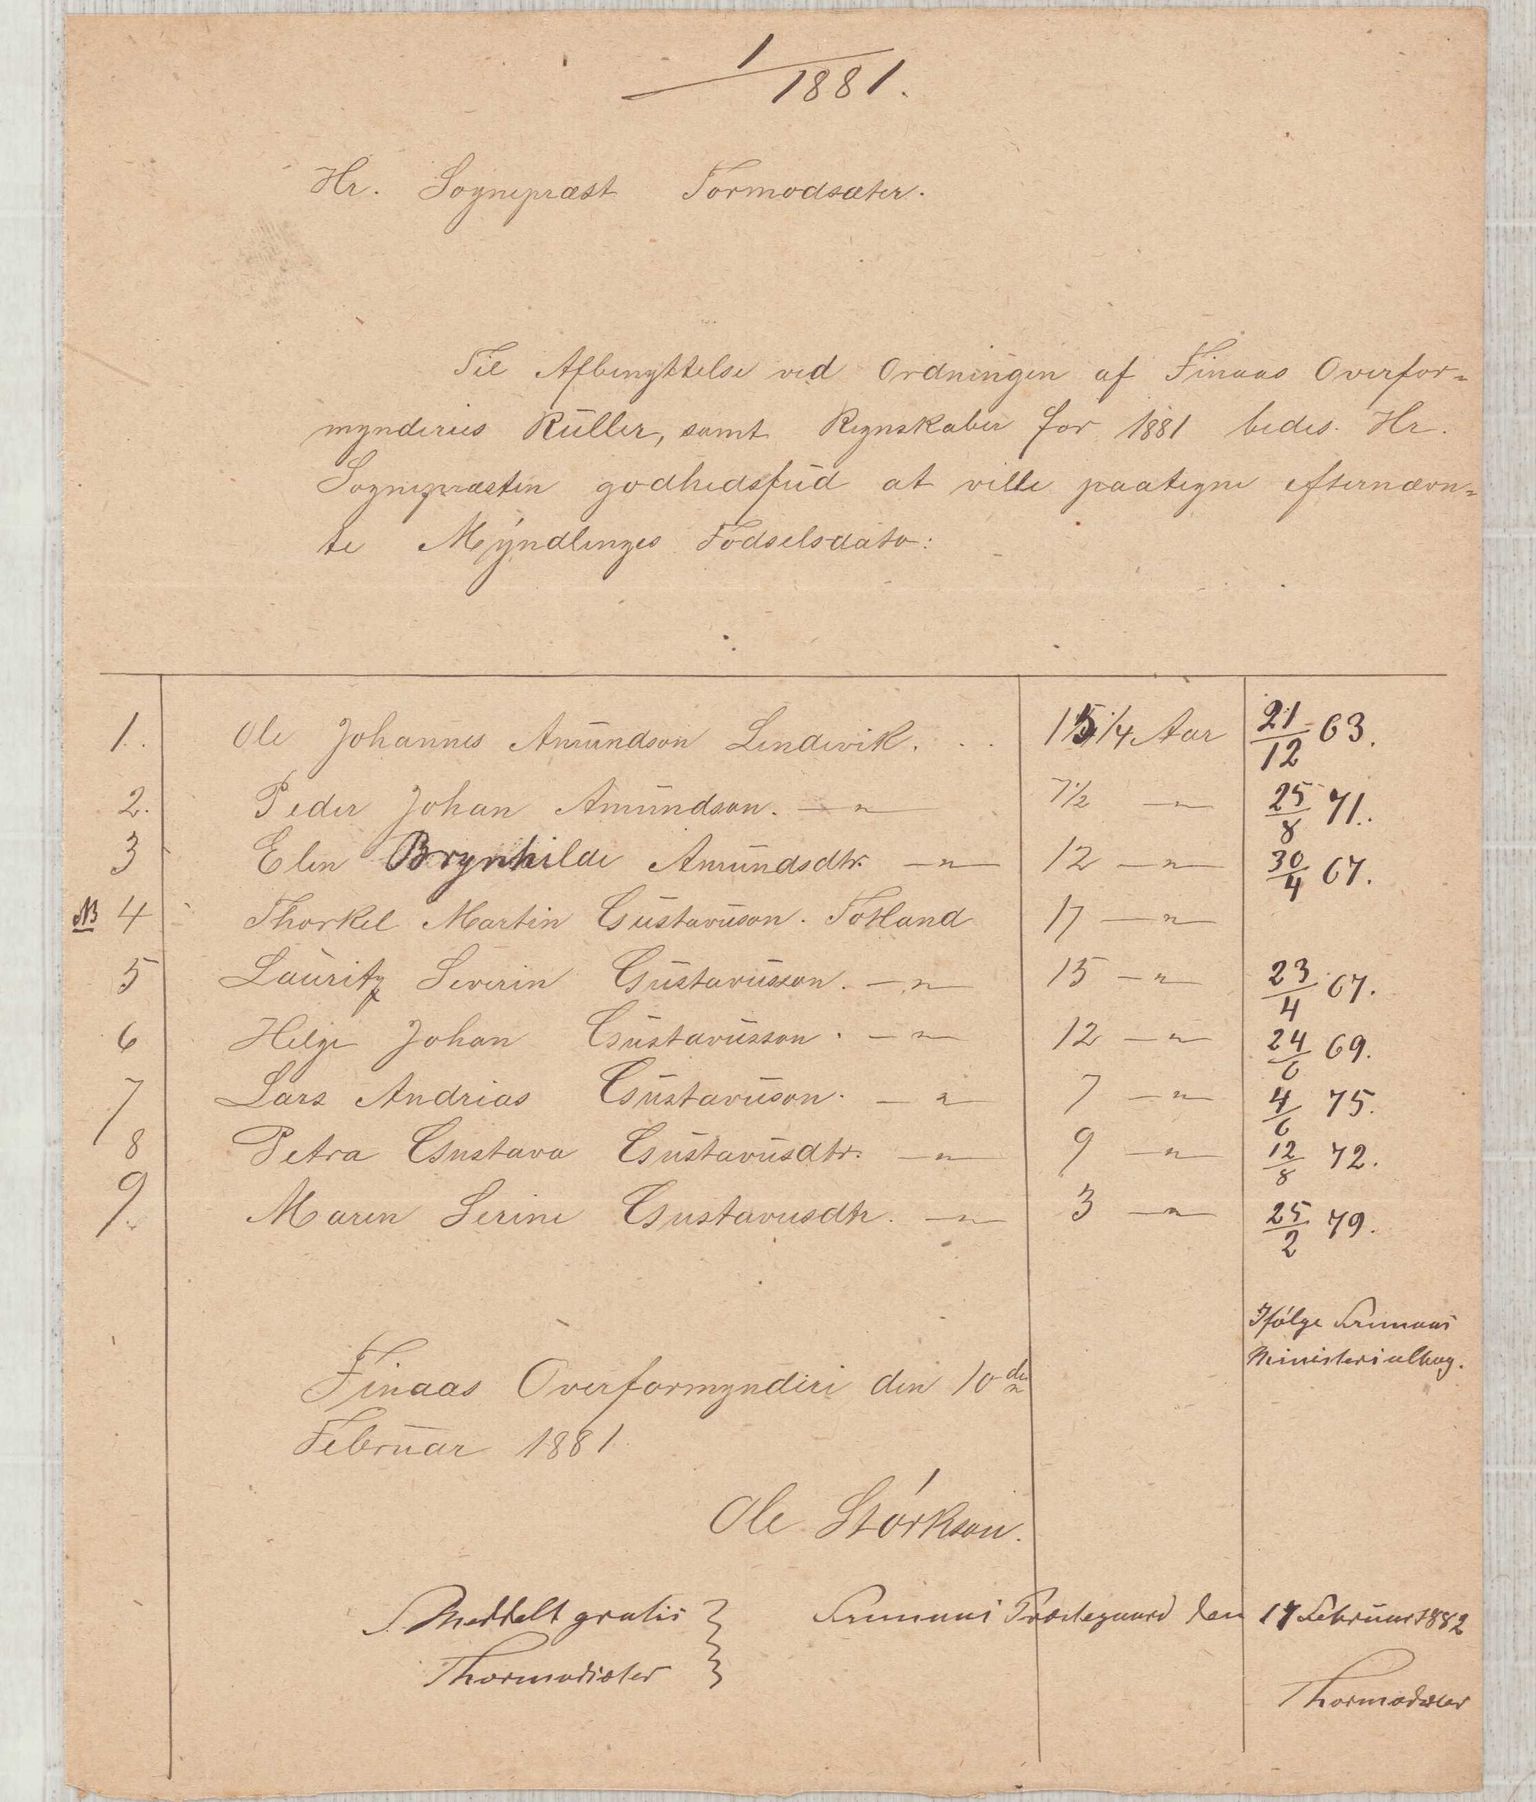 1/1881.
Hr. Sognepræst Tormodsæter.
Til Afbenyttelse ved Ordningen af Finaas Overfor-
mynderies Rüller, samt Regnskaber for 1881 bedes Hr.
Sognepræsten godhedsfuld at ville paategne efternævn-
te Myndlinges Fødselsdato:
1. Ole Johannes Amundson Lindevik. . . 15 1/4 Aar 21/12 63.
2. Peder Johan Amundson. — " — 7 1/2 — " — 25/8 71.
3 Elen Brynhilde Amundsdtr. — " — 12 — " — 30/4 67.
NB 4 Thorkel Martin Gustavuson. Totland 17 — " —
5 Lauritz Severin Gustavusson. — " — 15 — " — 23/4 67.
6 Helge Johan Gustavusson. — " — 12 — " — 24/6 69.
7 Lars Andrias Gustavuson. — " — 7 — " — 4/6 75.
8 Petra Gustava Gustavusdtr. — " — 9 — " — 12/8 72.
9. Maren Serine Gustavusdtr. — " — 3 — " — 25/2 79.
Ifølge Finnaas
Ministerialbog.
Finaas Overformynderi den 10de
Februar 1881
Ole Størkson.
Meddelt gratis } Finnaas Præstegaard den 17 Februar 1882
Thormodsæter } Thormodsæter